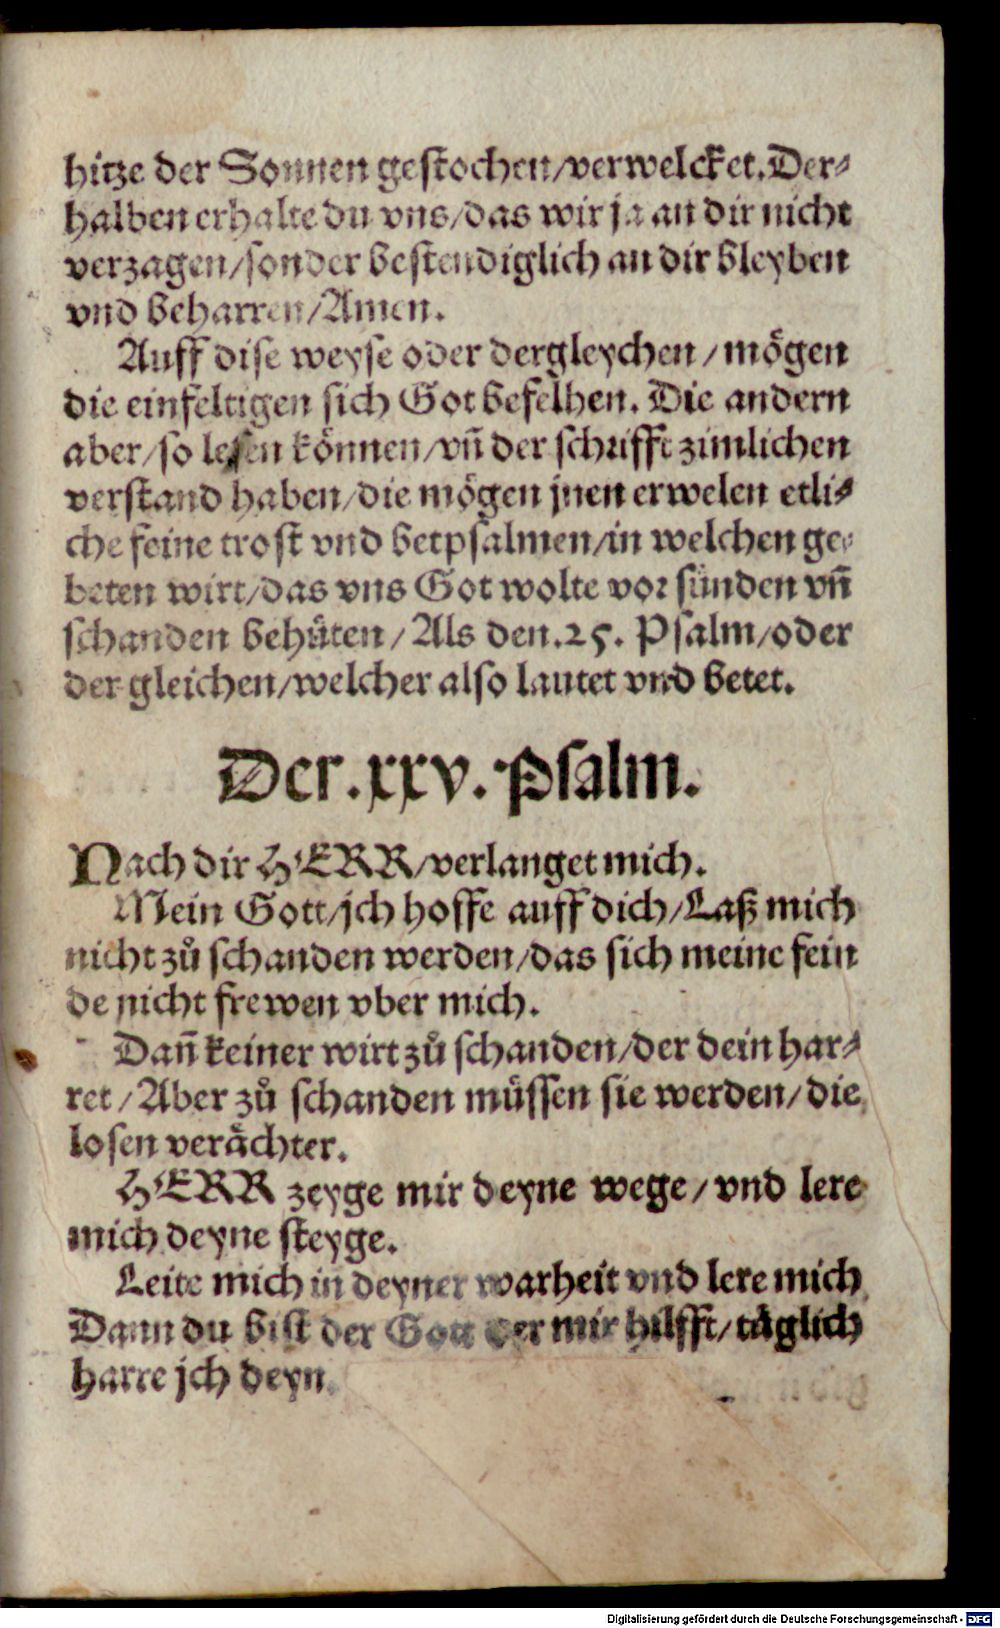 hitze der Sonnen gestochen/verwelcket. Der-
halben erhalte du vns/das wir ja an dir nicht
verzagen/sonder bestendiglich an dir bleyben
vnd beharren/Amen.
Auff dise weyse oder dergleychen/mögen
die einfeltigen sich Got befelhen. Die andern
aber/so lesen können/vñ der schrifft zimlichen
verstand haben/die mögen jnen erwelen etli-
che feine trost vnd betpsalmen/in welchen ge-
beten wirt/das vns Got wolte vor sünden vñ
schanden behüten/Als den.25. Psalm/oder
der gleichen/welcher also lautet vnd betet.
Der.xxv.Psalm.
Nach dir HERR/verlanget mich.
Mein Gott/jch hoffe auff dich/Laß mich
nicht zů schanden werden/das sich meine fein
de nicht frewen vber mich.
Dañ keiner wirt zů schanden/der dein har-
ret/Aber zů schanden müssen sie werden/die
losen verächter.
HERR zeyge mir deyne wege/vnd lere
mich deyne steyge.
Leite mich in deyner warheit vnd lere mich
Dann du bist der Gott der mir hilfft/täglich
harre jch deyn.
Digitalisierung gefördert durch die Deutsche Forschungsgemeinschaft - DFG